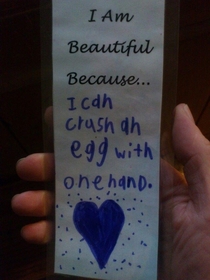 I Am
Beautiful
Because...
I can
crush an
egg with
one hand.